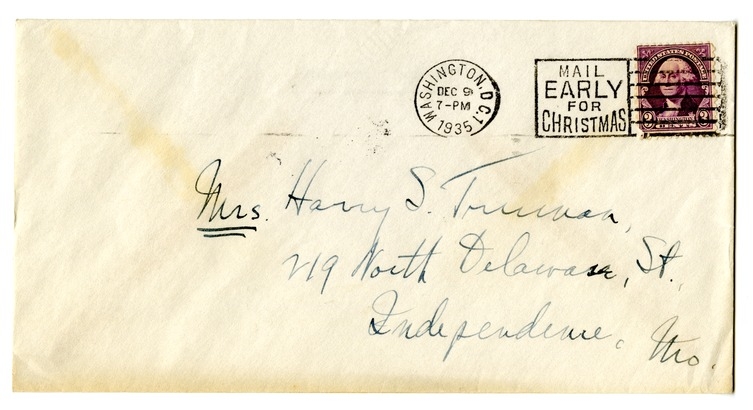 WASHINGTON, D.C. 1
DEC 9
7-PM
1935
MAIL
EARLY
FOR
CHRISTMAS
UNITED STATES POSTAGE
3 WASHINGTON 3
Mrs. Harry S. Truman,
219 North Delaware, St.,
Independence, Mo.